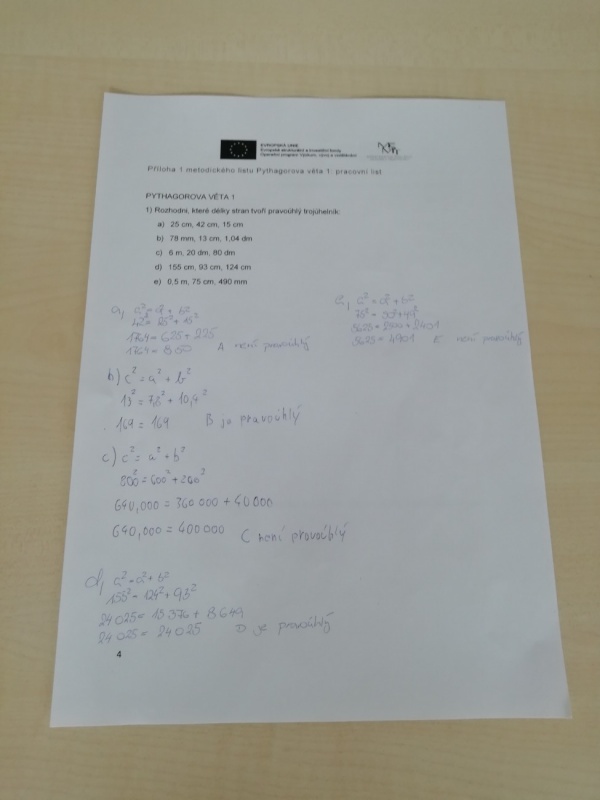 EVROPSKÁ UNIE
Evropské strukturální a investiční fondy
Operační program Výzkum, vývoj a vzdělávání
Příloha 1 metodického listu Pythagorova věta 1: pracovní list
PYTHAGOROVA VĚTA 1
1) Rozhodni, které délky stran tvoří pravoúhlý trojúhelník:
a) 25 cm, 42 cm, 15 cm
b) 78 mm, 13 cm, 1,04 dm
c) 6 m, 20 dm, 80 dm
d) 155 cm, 93 cm, 124 cm
e) 0,5 m, 75 cm, 490 mm
a, c² = a² + b²
42² = 25² + 15²
1764 = 625 + 225
1764 = 850 A není pravoúhlý
e, c² = a² + b²
75² = 50² + 49²
5625 = 2500 + 2401
5625 = 4901 E není pravoúhlý
b) c² = a² + b²
13² = 7,8² + 10,4²
169 = 169 B je pravoúhlý
c) c² = a² + b²
800² = 600² + 200²
640,000 = 360 000 + 40 000
640,000 = 400 000 C není pravoúhlý
d, c² = a² + b²
155² = 124² + 93²
24 025 = 15 376 + 8 649
24 025 = 24 025 D je pravoúhlý
4